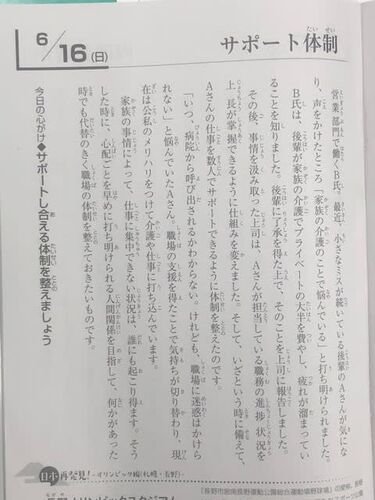 6/16(日)
サポート体制
営業部門で働くB氏。最近、小さなミスが続いている後輩のAさんが気になり、声をかけたところ「家族の介護のことで悩んでいる」と打ち明けられました。
B氏は、後輩が家族の介護でプライベートの大半を費やし、疲れが溜まっていることを知りました。後輩に了承を得た上で、そのことを上司に報告しました。
その後、事情を汲み取った上司は、Aさんが担当している職務の進捗状況を上長が掌握できるように仕組みを変えました。そして、いざという時に備えて、Aさんの仕事を数人でサポートできるように体制を整えたのです。
「いつ、病院から呼び出されるかわからない。けれども、職場に迷惑はかけられない」と悩んでいたAさん。職場の支援を得たことで気持ちが切り替わり、現在は公私のメリハリをつけて介護や仕事に打ち込んでいます。
家族の事情によって、仕事に集中できない状況は、誰にも起こり得ます。そうした時に、心配ごとを早めに打ち明けられる人間関係を目指して、何かがあった時でも代替のきく職場の体制を整えておきたいものです。
今日の心がけ◆サポートし合える体制を整えましょう
日本再発見!
-オリンピック編(札幌・長野)-